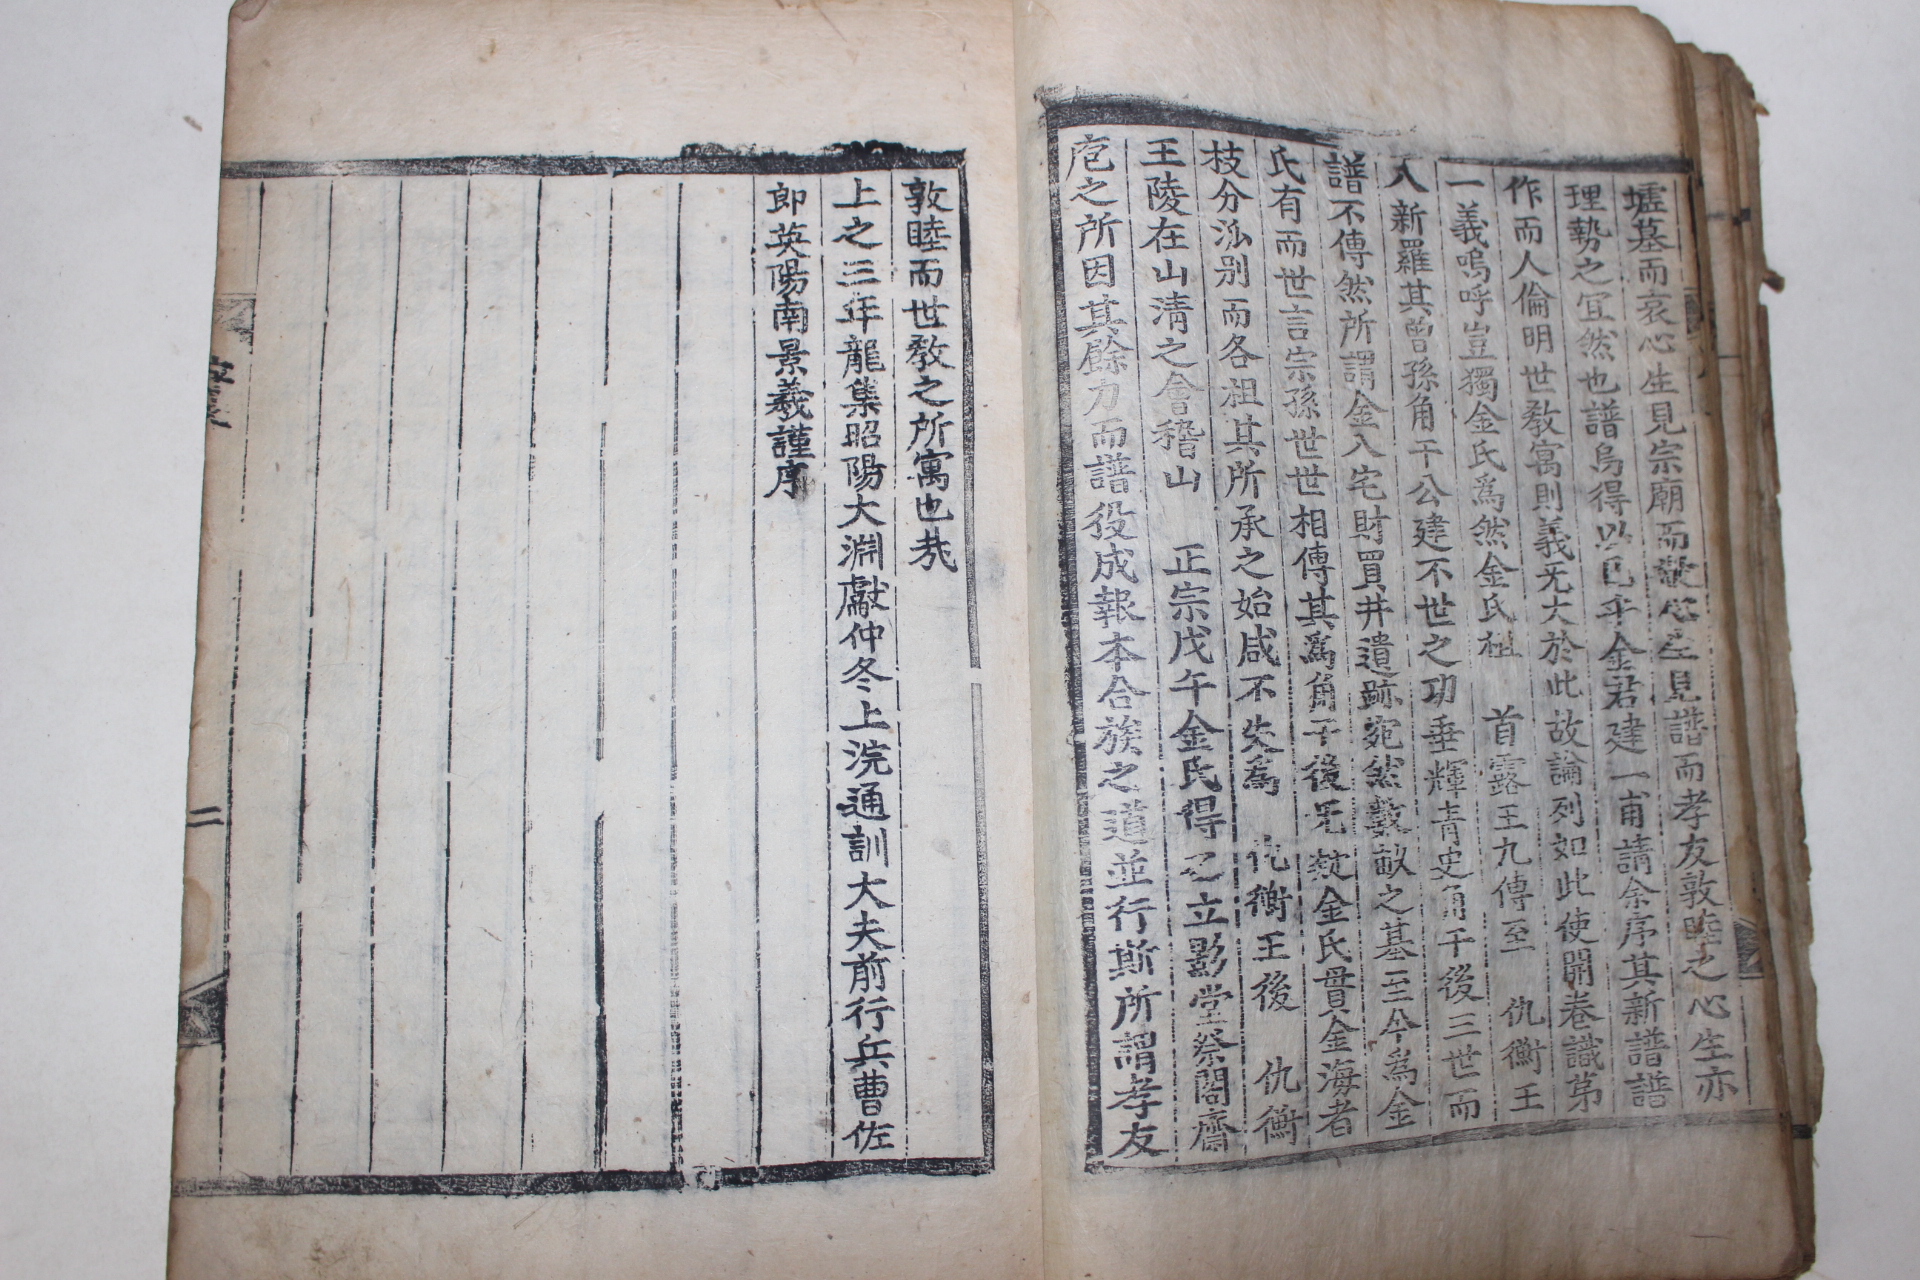 墟墓而哀心生見宗廟而敬心生見譜而孝友敦睦之心生亦
理勢之宜然也譜烏得以已乎金君建一甫請余序其新譜譜
作而人倫明世敎寓則義无大於此故論列如此使開卷識苐
一義嗚呼豈獨金氏爲然金氏祖 首露王九傳至 仇衡王
入新羅其曾孫角干公建不世之功垂輝青史角干後三世而
譜不傳然所謂金入宅財買井遺跡宛然數畝之墓至今爲金
氏有而世言宗孫世世相傳其爲角干後无疑金氏貫金海者
枝分泒別而各祖其所承之始咸不失爲 仇衡王後 仇衡
王陵在山清之會稽山 正宗戊午金氏得之立影堂祭閣齋
庖之所因其餘力而譜役成報本合族之道並行斯所謂孝友
敦睦而世敎之所寓也㢤
上之三年龍集昭陽大淵獻仲冬上浣通訓大夫前行兵曹佐
郎英陽南景羲謹序
二